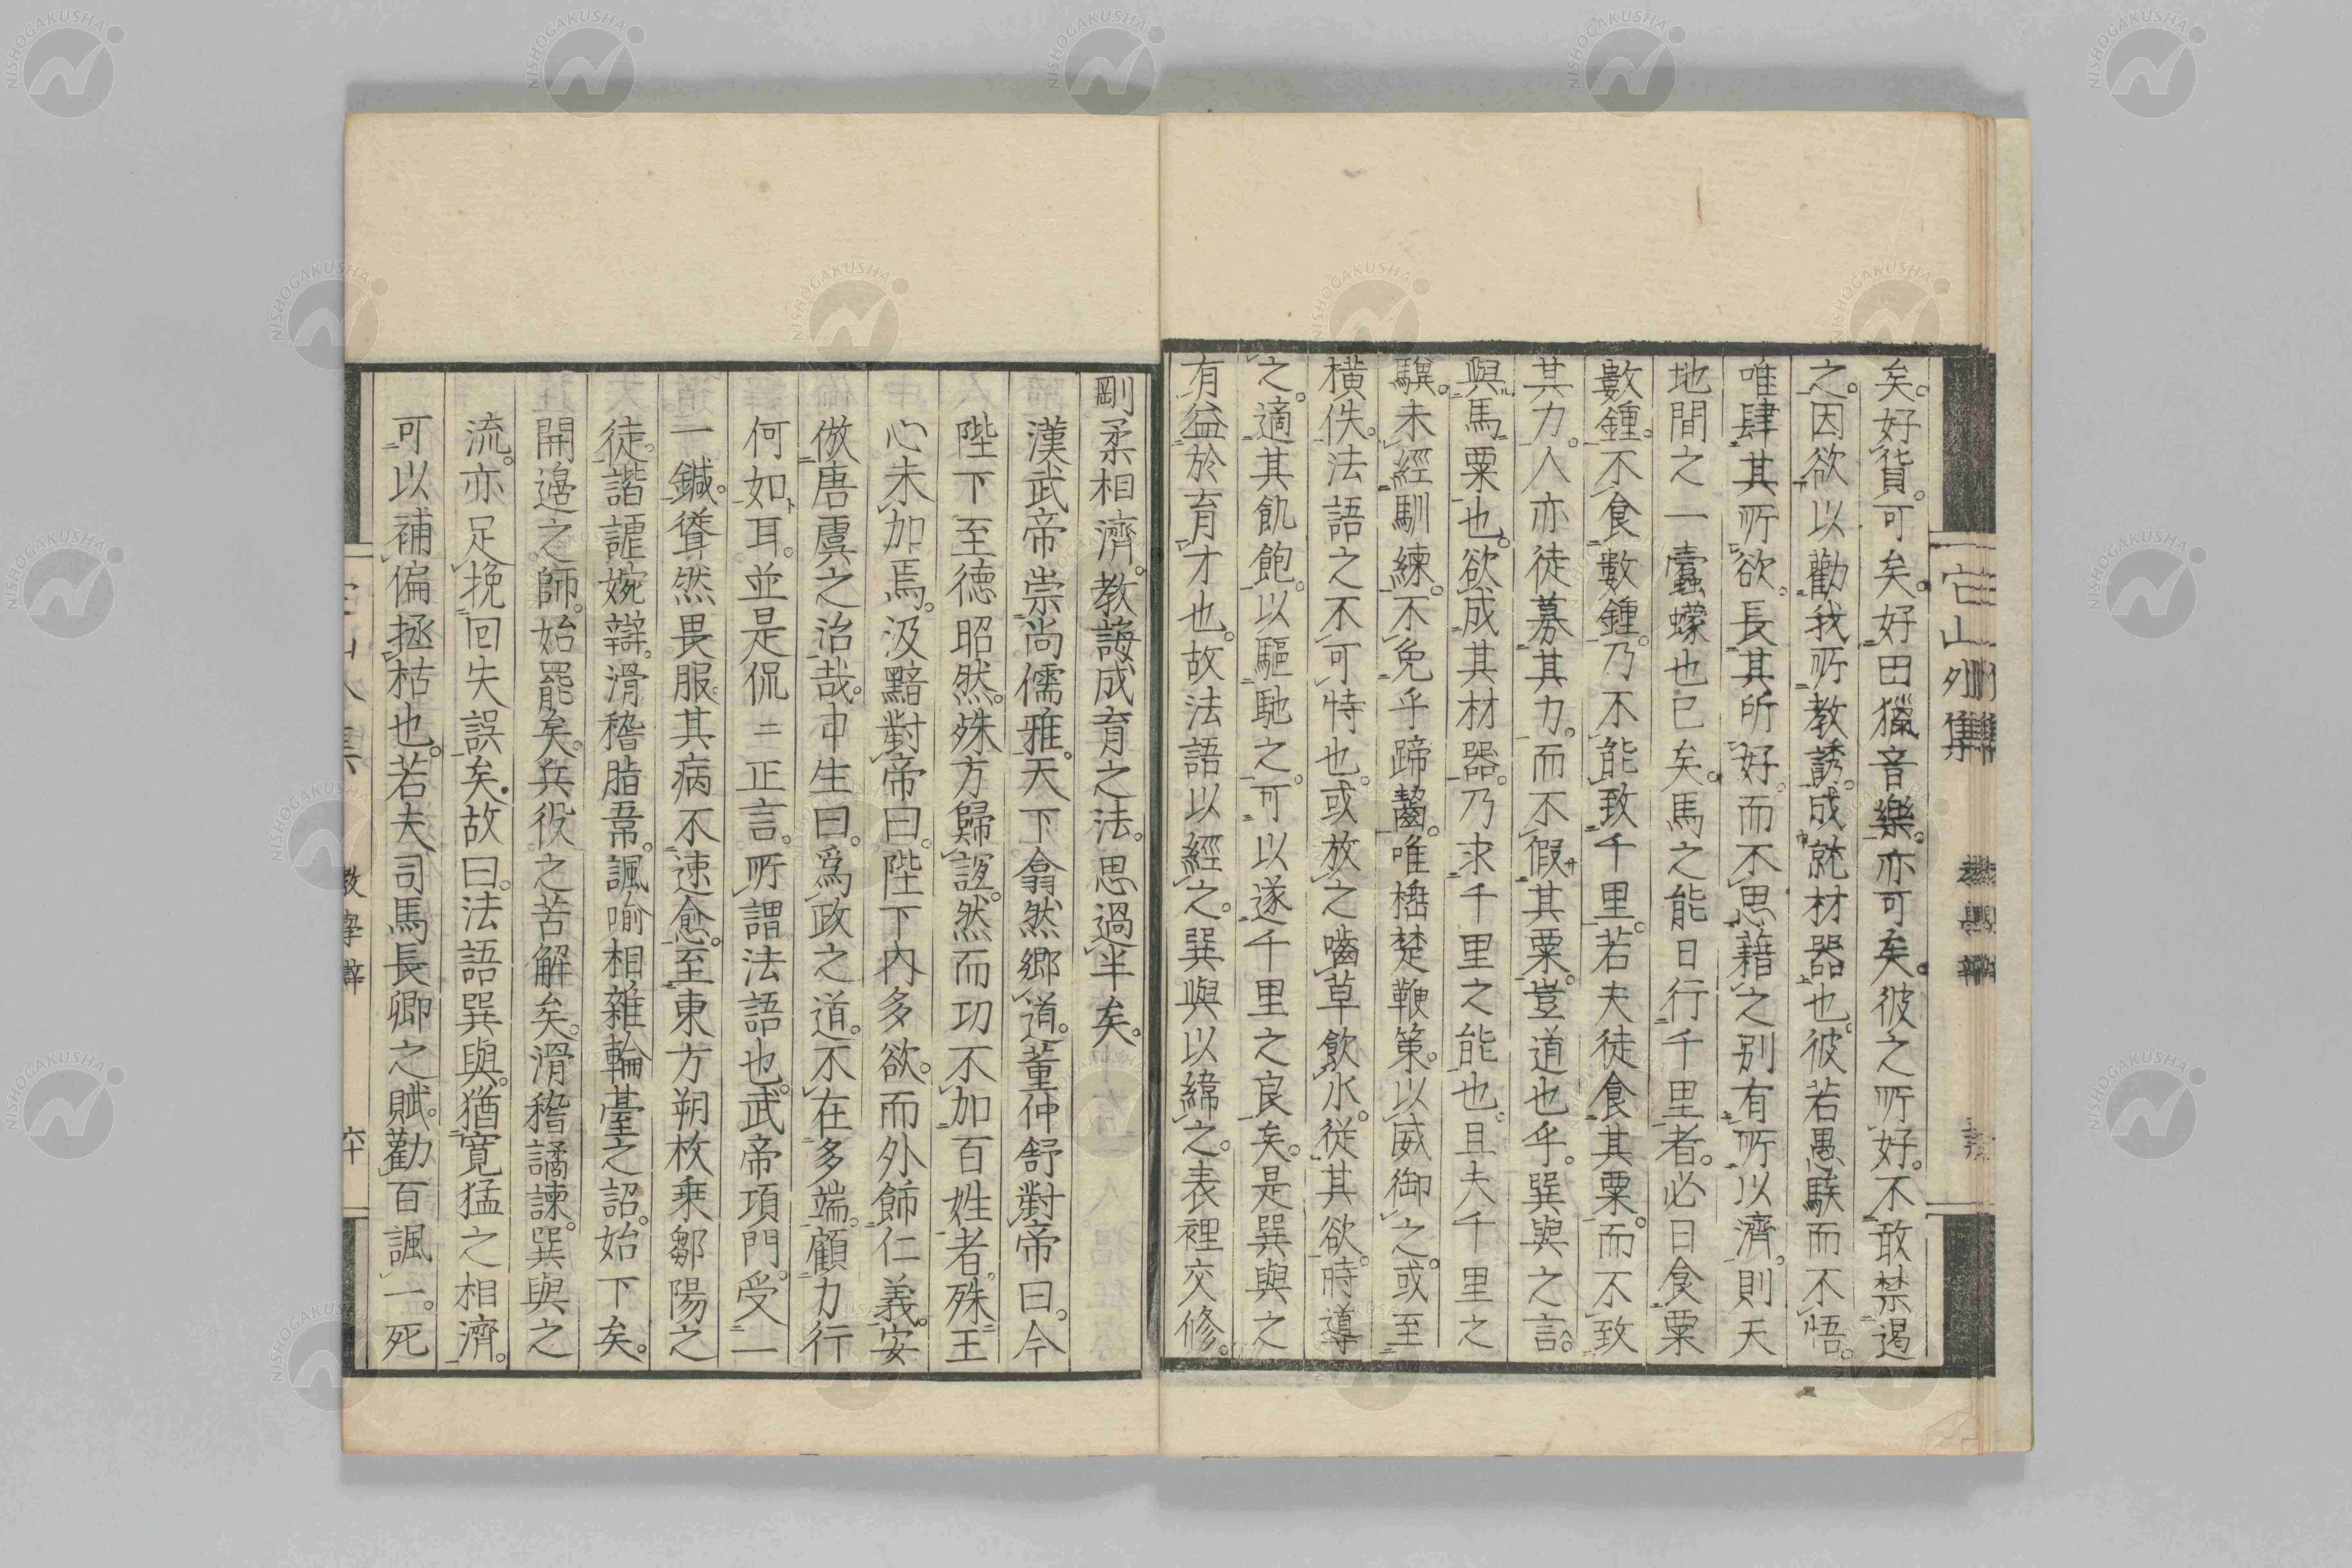 矣。好貨。可矣。好田獵音樂。亦可矣。彼之所好。不敢禁遏
之。因欲以勸我所教誘。成就材器也。彼若愚騃而不悟。
唯肆其所欲。長其所好。而不思藉之別有所以濟。則天
地間之一蠹蠓也已矣。馬之能日行千里者。必日食粟
數鍾。不食數鍾。乃不能致千里。若夫徒食其粟。而不致
其力。人亦徒募其力。而不假其粟。豈道也乎。巽與之言。
與馬粟也。欲成其材器。乃求千里之能也。且夫千里之
驥。未經馴練。不免乎蹄齧。唯檛楚鞭策。以威御之。或至
橫佚。法語之不可恃也。或放之嚙草飲水。從其欲。時導
之。適其飢飽。以驅馳之。可以遂千里之良矣。是巽與之
有益於育才也。故法語以經之。巽與以緯之。表裡交修。
剛柔相濟。教誨成育之法。思過半矣。
漢武帝崇尚儒雅。天下翕然鄉道。董仲舒對帝曰。今
陛下至德昭然。殊方歸誼。然而功不加百姓者。殊王
心未加焉。汲黯對帝曰。陛下內多欲。而外飾仁義。安
倣唐虞之治哉。申生曰。爲政之道。不在多端。顧力行
何如耳。並是侃〻正言。所謂法語也。武帝項門。受一
一鍼。聳然畏服。其病不速愈。至東方朔枚乘鄒陽之
徒。諧謔婉辯。滑稽脂韋。諷喻相雜。輪臺之詔。始下矣。
開邊之師。始罷矣。兵役之苦解矣。滑稽譎諫。巽與之
流。亦足挽回失誤矣。故曰。法語巽與。猶寬猛之相濟。
可以補偏拯枯也。若夫司馬長卿之賦。勸百諷一。死